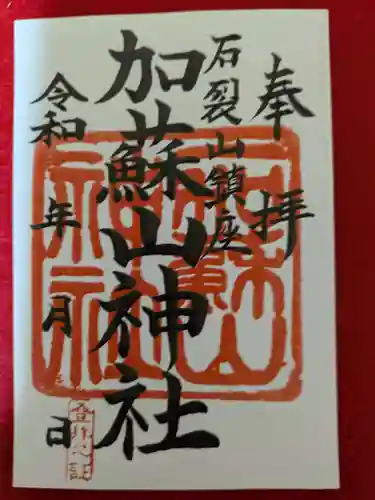 奉拝
石裂山鎮座
加蘇山神社
令和 年 月 日